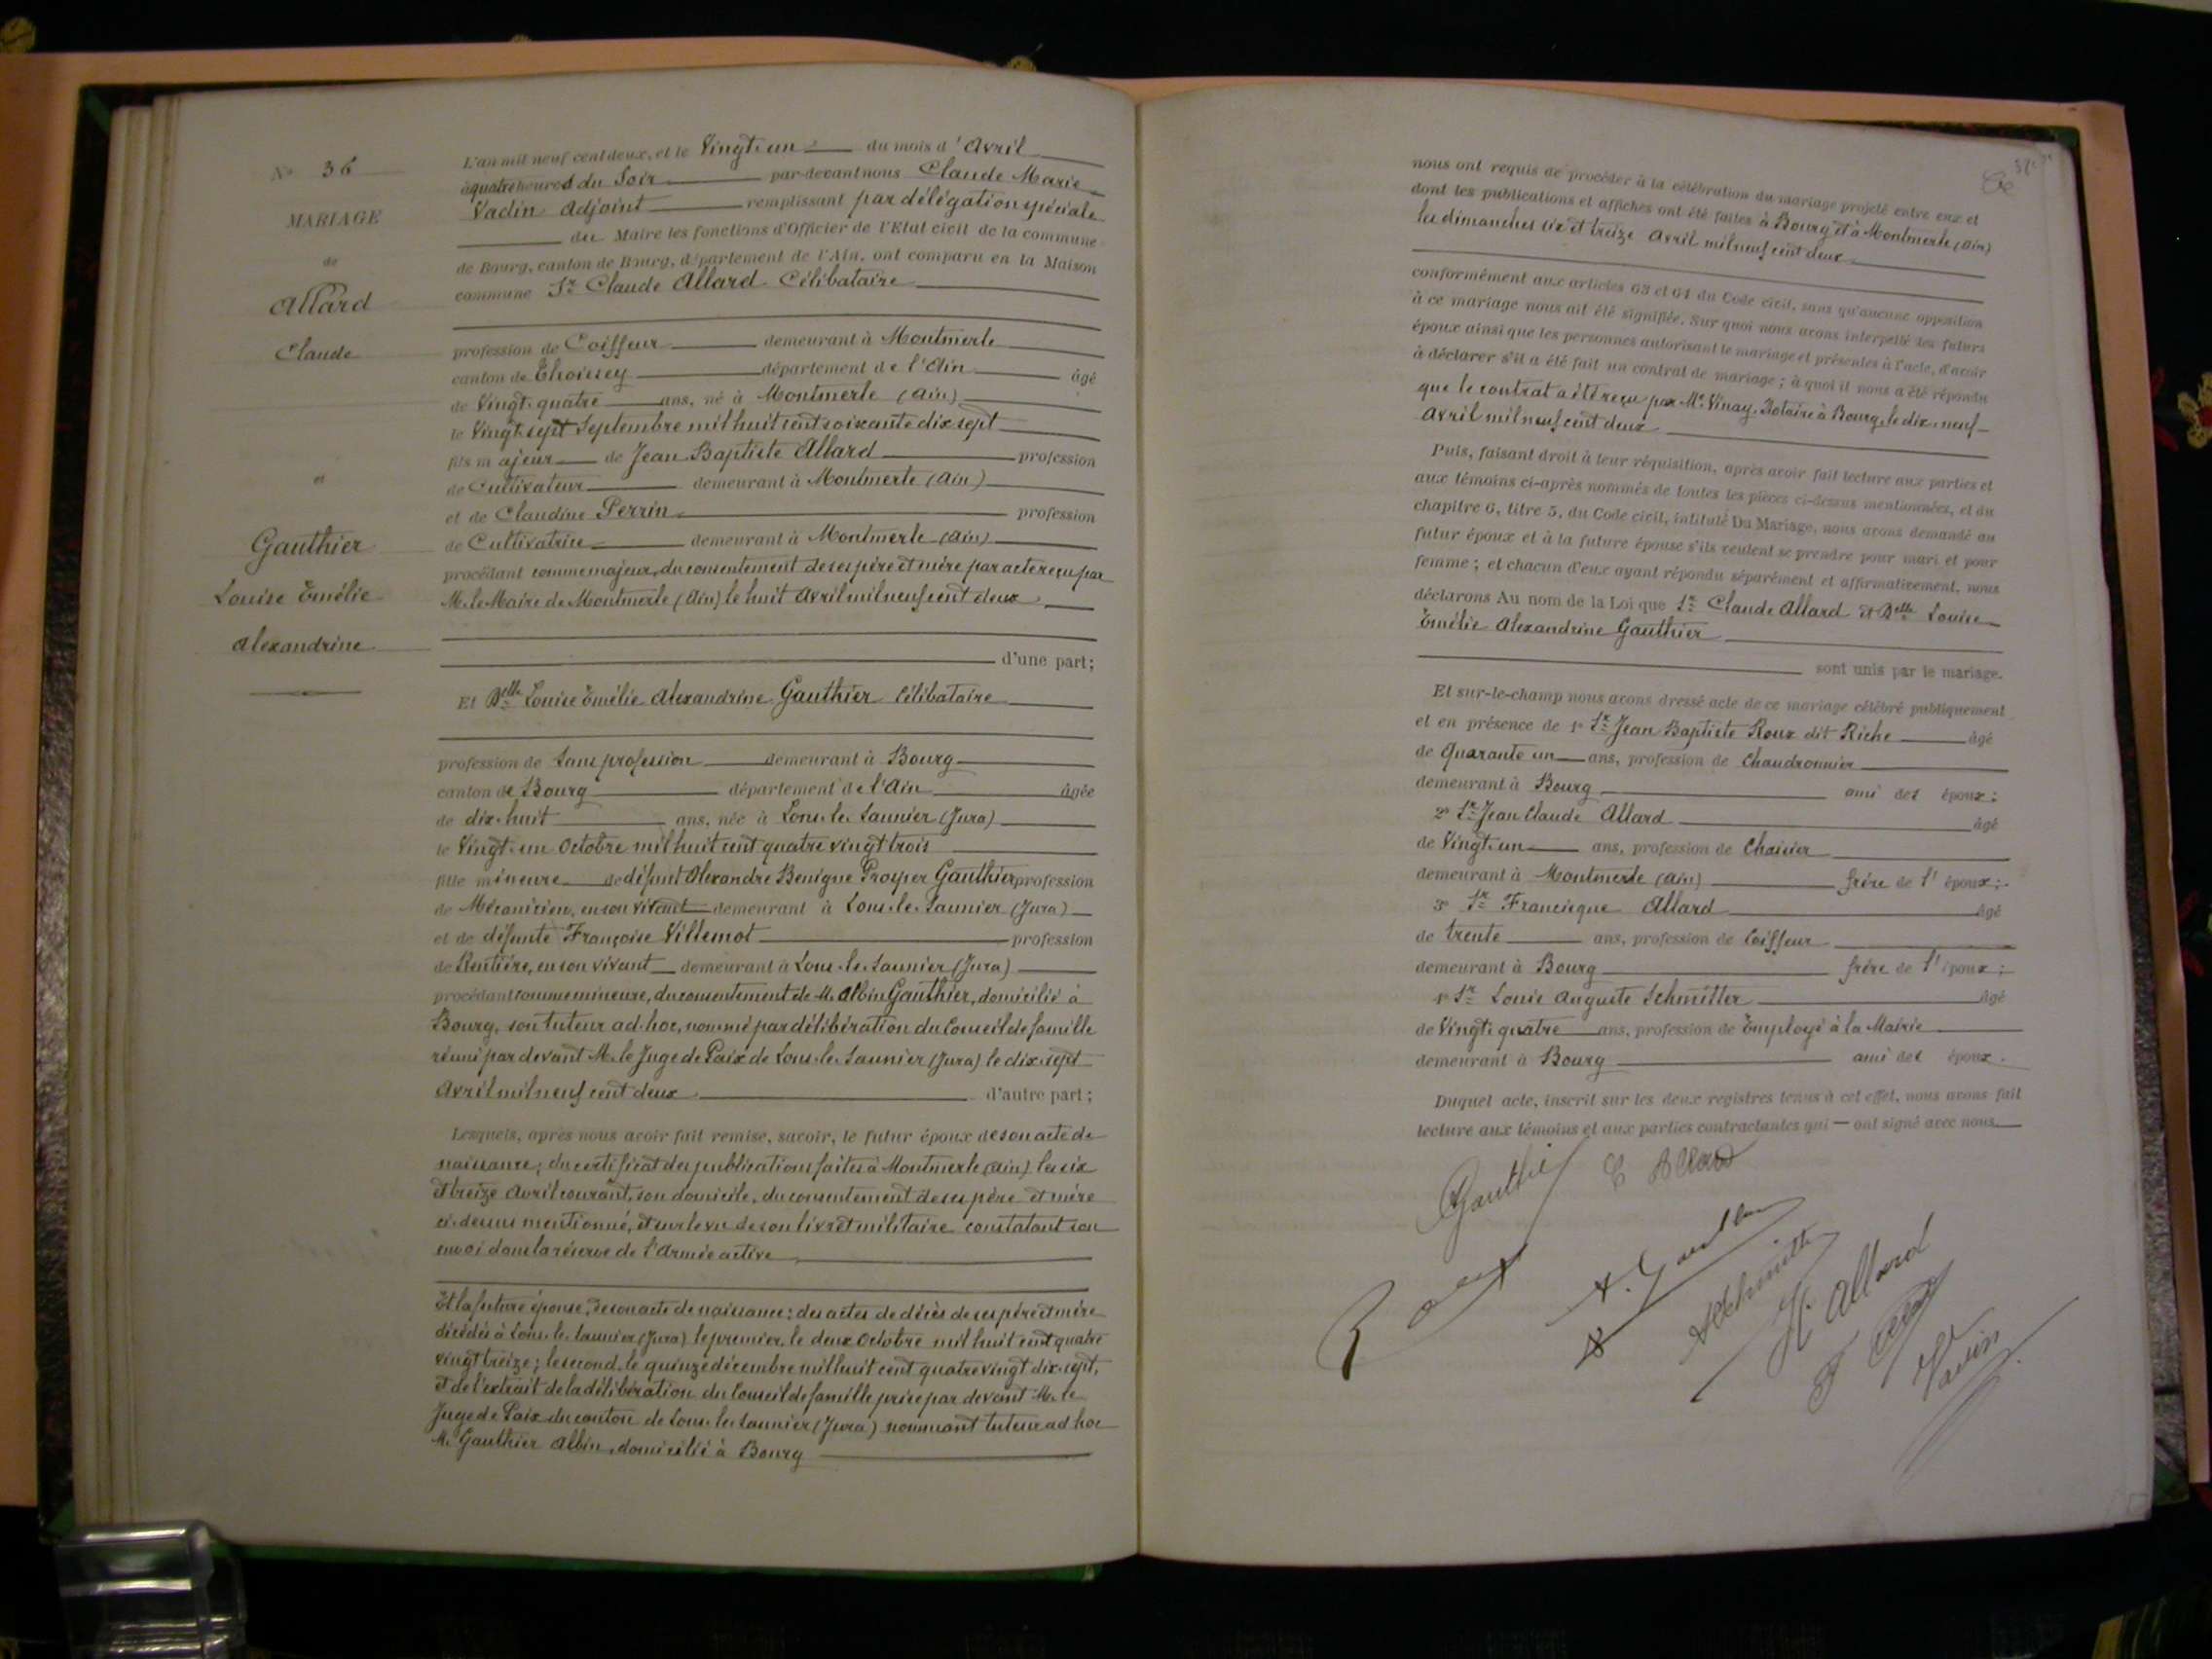 N° 36
MARIAGE
de
Allard
Claude
et
Gauthier
Louise Emélie
Alexandrine
L'an mil neuf cent deux, et le Vingt-un du mois d'Avril
à quatre heures du Soir par-devant nous Claude Marie
Vadin Adjoint remplissant par délégation spéciale
du Maire les fonctions d'Officier de l'Etat civil de la commune
de Bourg, canton de Bourg, département de l'Ain, ont comparu en la Maison
commune Sr Claude Allard Célibataire
profession de Coiffeur demeurant à Montmerle
canton de Thoissey département de l'Ain âgé
de Vingt-quatre ans, né à Montmerle (Ain)
le Vingt-sept Septembre mil huit cent soixante dix sept
fils majeur de Jean Baptiste Allard profession
de Cultivateur demeurant à Montmerle (Ain)
et de Claudine Perrin profession
de Cultivatrice demeurant à Montmerle (Ain)
procédant comme majeur, du consentement de ses père et mère par acte reçu par
M. le Maire de Montmerle (Ain) le huit Avril mil neuf cent deux
d'une part;
Et Delle Louise Emélie Alexandrine Gauthier Célibataire
profession de Sans profession demeurant à Bourg
canton de Bourg département de l'Ain âgée
de dix-huit ans, née à Lons-le-Saunier (Jura)
le Vingt-un Octobre mil huit cent quatre vingt trois
fille mineure de défunt Alexandre Benigne Prosper Gauthier profession
de Mécanicien, en son vivant demeurant à Lons-le-Saunier (Jura)
et de défunte Françoise Villemot profession
de Rentière, en son vivant demeurant à Lons-le-Saunier (Jura)
procédant comme mineure, du consentement de M. Albin Gauthier, domicilié à
Bourg, son tuteur ad-hoc, nommé par délibération du Conseil de famille
réuni par devant M. le Juge de Paix de Lons-le-Saunier (Jura) le dix-sept
Avril mil neuf cent deux d'autre part;
Lesquels, après nous avoir fait remise, savoir, le futur époux de son acte de
naissance; du certificat des publications faites à Montmerle (Ain) les six
et treize Avril courant, son domicile, du consentement de ses père et mère
ci-dessus mentionné, et sur le vu de son livret militaire constatant son
envoi dans la réserve de l'Armée active
Et la future épouse, de son acte de naissance; des actes de décès de ses père et mère
décédés à Lons-le-Saunier (Jura) le premier, le deux Octobre mil huit cent quatre
vingt treize; le second, le quinze décembre mil huit cent quatre vingt dix-sept,
et de l'extrait de la délibération du Conseil de famille prise par devant M. le
Juge de Paix du canton de Lons-le-Saunier (Jura) nommant tuteur ad hoc
M. Gauthier Albin, domicilié à Bourg
nous ont requis de procéder à la célébration du mariage projeté entre eux et
dont les publications et affiches ont été faites à Bourg et à Montmerle (Ain)
les dimanches six et treize Avril mil neuf cent deux
conformément aux articles 63 et 64 du Code civil, sans qu'aucune opposition
à ce mariage nous ait été signifiée. Sur quoi nous avons interpellé les futurs
époux ainsi que les personnes autorisant le mariage et présentes à l'acte, d'avoir
à déclarer s'il a été fait un contrat de mariage; à quoi il nous a été répondu
que le contrat a été reçu par Me Vinay, Notaire à Bourg, le dix-neuf
Avril mil neuf cent deux
Puis, faisant droit à leur réquisition, après avoir fait lecture aux parties et
aux témoins ci-après nommés de toutes les pièces ci-dessus mentionnées, et du
chapitre 6, titre 5, du Code civil, intitulé Du Mariage, nous avons demandé au
futur époux et à la future épouse s'ils veulent se prendre pour mari et pour
femme; et chacun d'eux ayant répondu séparément et affirmativement, nous
déclarons Au nom de la Loi que Sr Claude Allard et Delle Louise
Emélie Alexandrine Gauthier
sont unis par le mariage.
Et sur-le-champ nous avons dressé acte de ce mariage célébré publiquement
et en présence de 1° Sr Jean Baptiste Roux dit Riche âgé
de Quarante un ans, profession de Chaudronnier
demeurant à Bourg ami des époux;
2° Sr Jean Claude Allard âgé
de Vingt-un ans, profession de Chaisier
demeurant à Montmerle (Ain) frère de l'époux;
3° Sr Francisque Allard âgé
de trente ans, profession de Coiffeur
demeurant à Bourg frère de l'époux;
4° Sr Louis Auguste Schmitter âgé
de Vingt-quatre ans, profession de Employé à la Mairie
demeurant à Bourg ami des époux.
Duquel acte, inscrit sur les deux registres tenus à cet effet, nous avons fait
lecture aux témoins et aux parties contractantes qui — ont signé avec nous
Gauthier C Allard
Roux
A. Gauthier
Schmitter
Allard
F Allard
Vadin